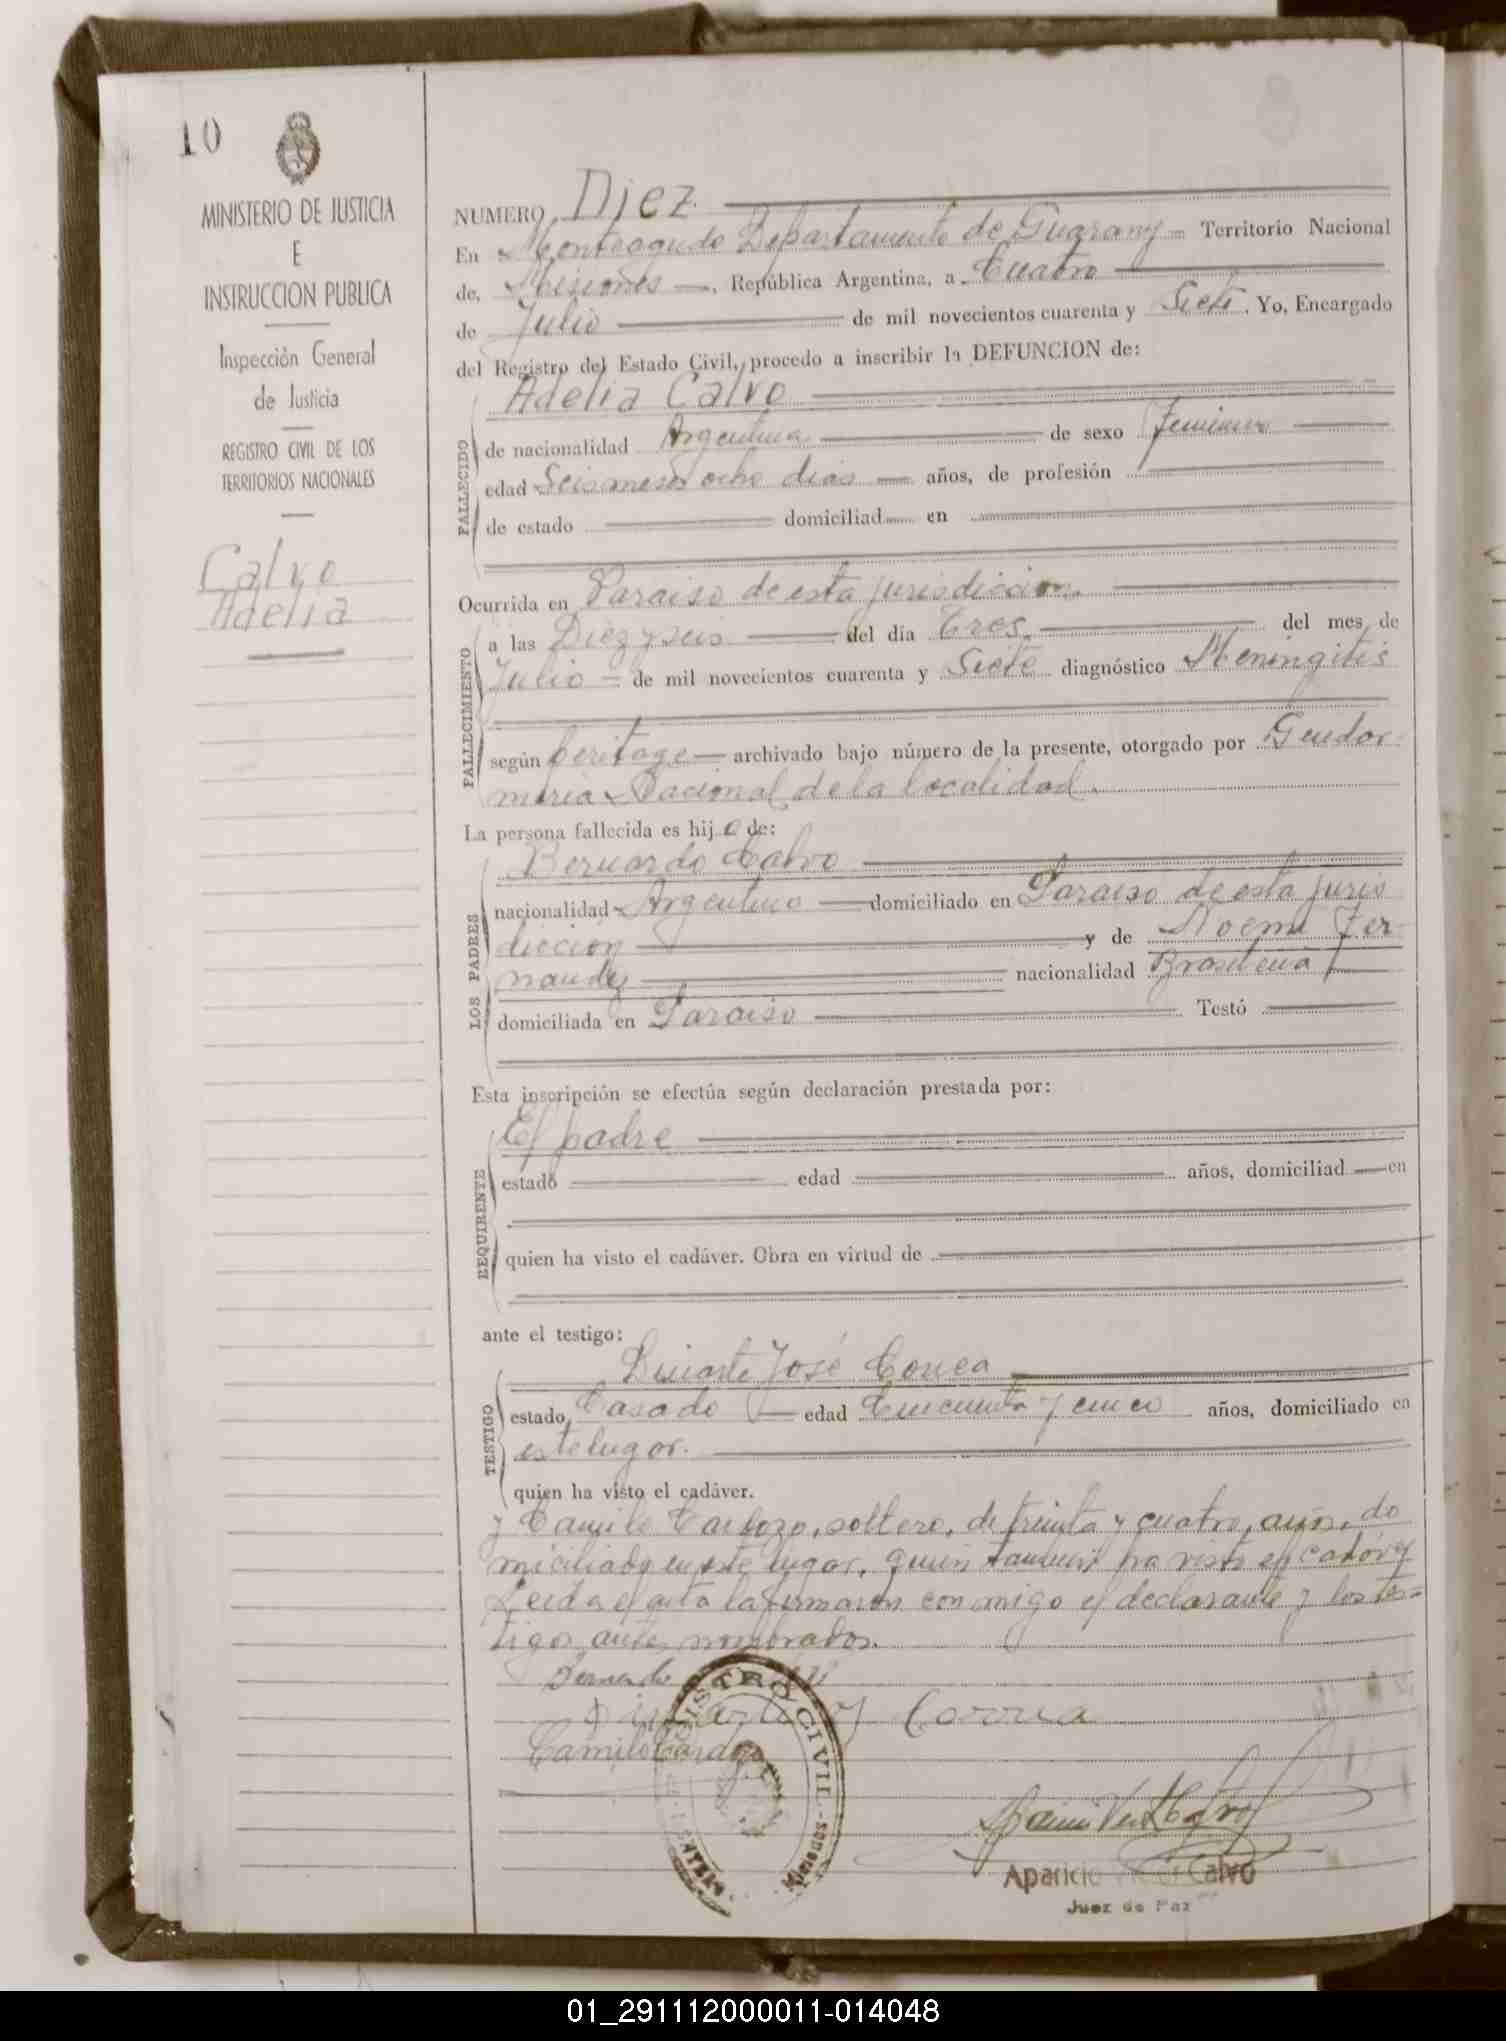 10
MINISTERIO DE JUSTICIA
E
INSTRUCCION PUBLICA
Inspección General
de Justicia
REGISTRO CIVIL DE LOS
TERRITORIOS NACIONALES
Calvo
Adelia
NUMERO Diez
En Monteagudo Departamento de Guarany Territorio Nacional
de, Misiones, República Argentina, a Cuatro
de Julio de mil novecientos cuarenta y Siete. Yo, Encargado
del Registro del Estado Civil, procedo a inscribir la DEFUNCION de:
Adelia Calvo
FALLECIDO
de nacionalidad Argentina de sexo Femenino
edad Seis meses ocho dias años, de profesión
de estado domiciliad en
Ocurrida en Paraiso de esta jurisdiccion.
FALLECIMIENTO
a las Diez y seis del día Tres. del mes de
Julio de mil novecientos cuarenta y Siete diagnóstico Meningitis
según peritage archivado bajo número de la presente, otorgado por Gendar
meria Nacional de la localidad.
La persona fallecida es hija de:
LOS PADRES
Bernardo Calvo
nacionalidad Argentino domiciliado en Paraiso de esta juris
diccion y de Noemi Fer
nandez nacionalidad Brasilena
domiciliada en Paraiso Testó
Esta inscripción se efectúa según declaración prestada por:
REQUIRENTE
El padre
estado edad años, domiciliad en
quien ha visto el cadáver. Obra en virtud de
ante el testigo:
TESTIGO
José Correa
estado Casado edad Cincuenta y cinco años, domiciliado en
este lugar.
quien ha visto el cadáver.
y Camilo Cardozo, soltero, de treinta y cuatro años, do
miciliado en este lugar, quien tambien ha visto el cadáver
Leida el acta la firmaron con migo el declarante y los tes=
tigos antes nombrados.
Bernardo
Correa
Camilo Cardozo
REGISTRO CIVIL
Aparicio Calvo
Juez de Paz
01_291112000011-014048